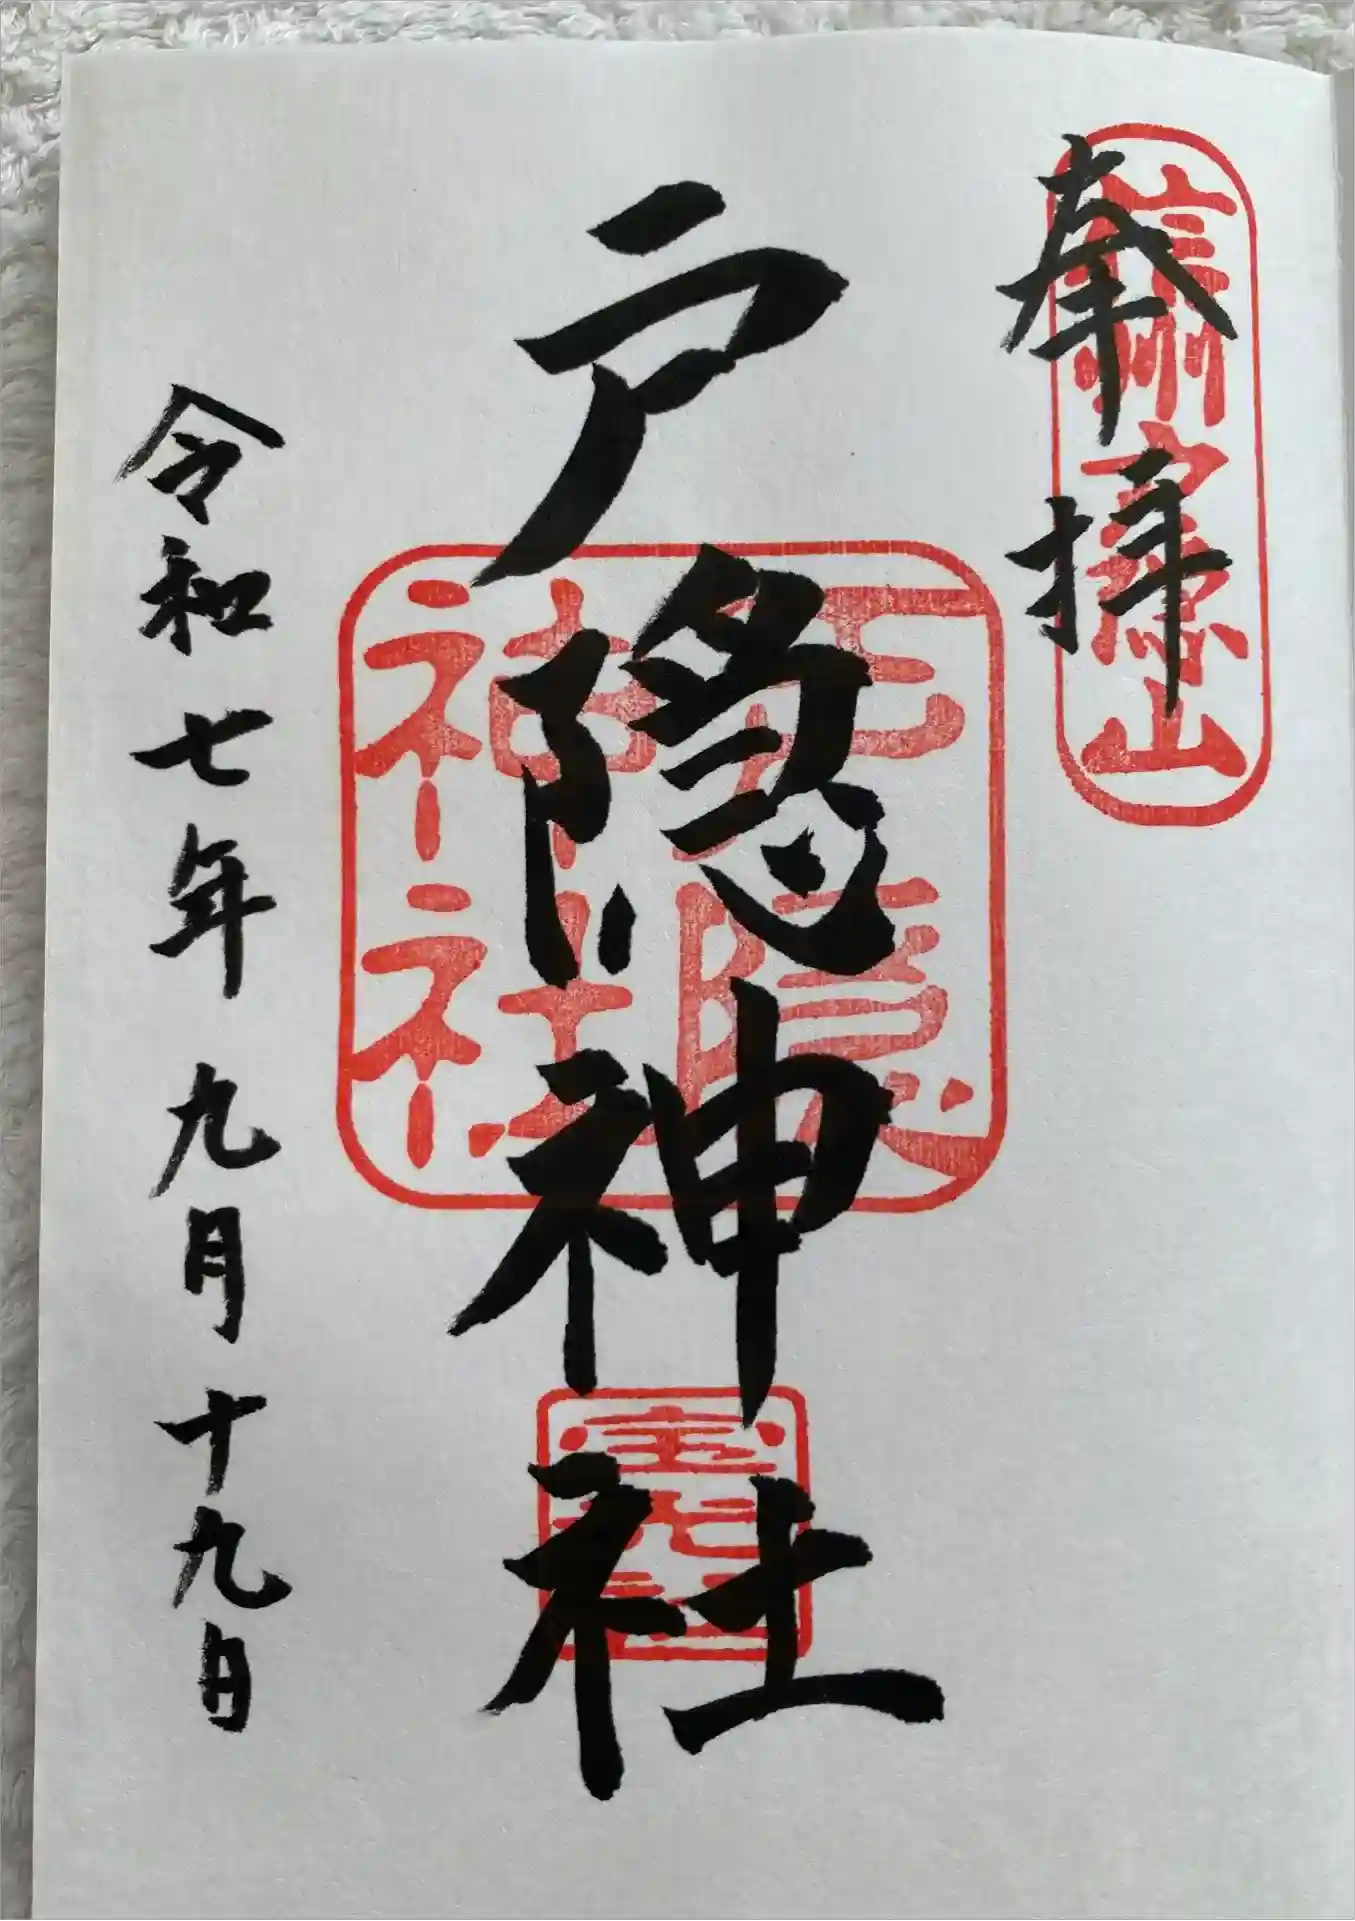 奉拝
信州
山
戸隠神社
戸隠
神社
宝光社
令和七年九月十九日